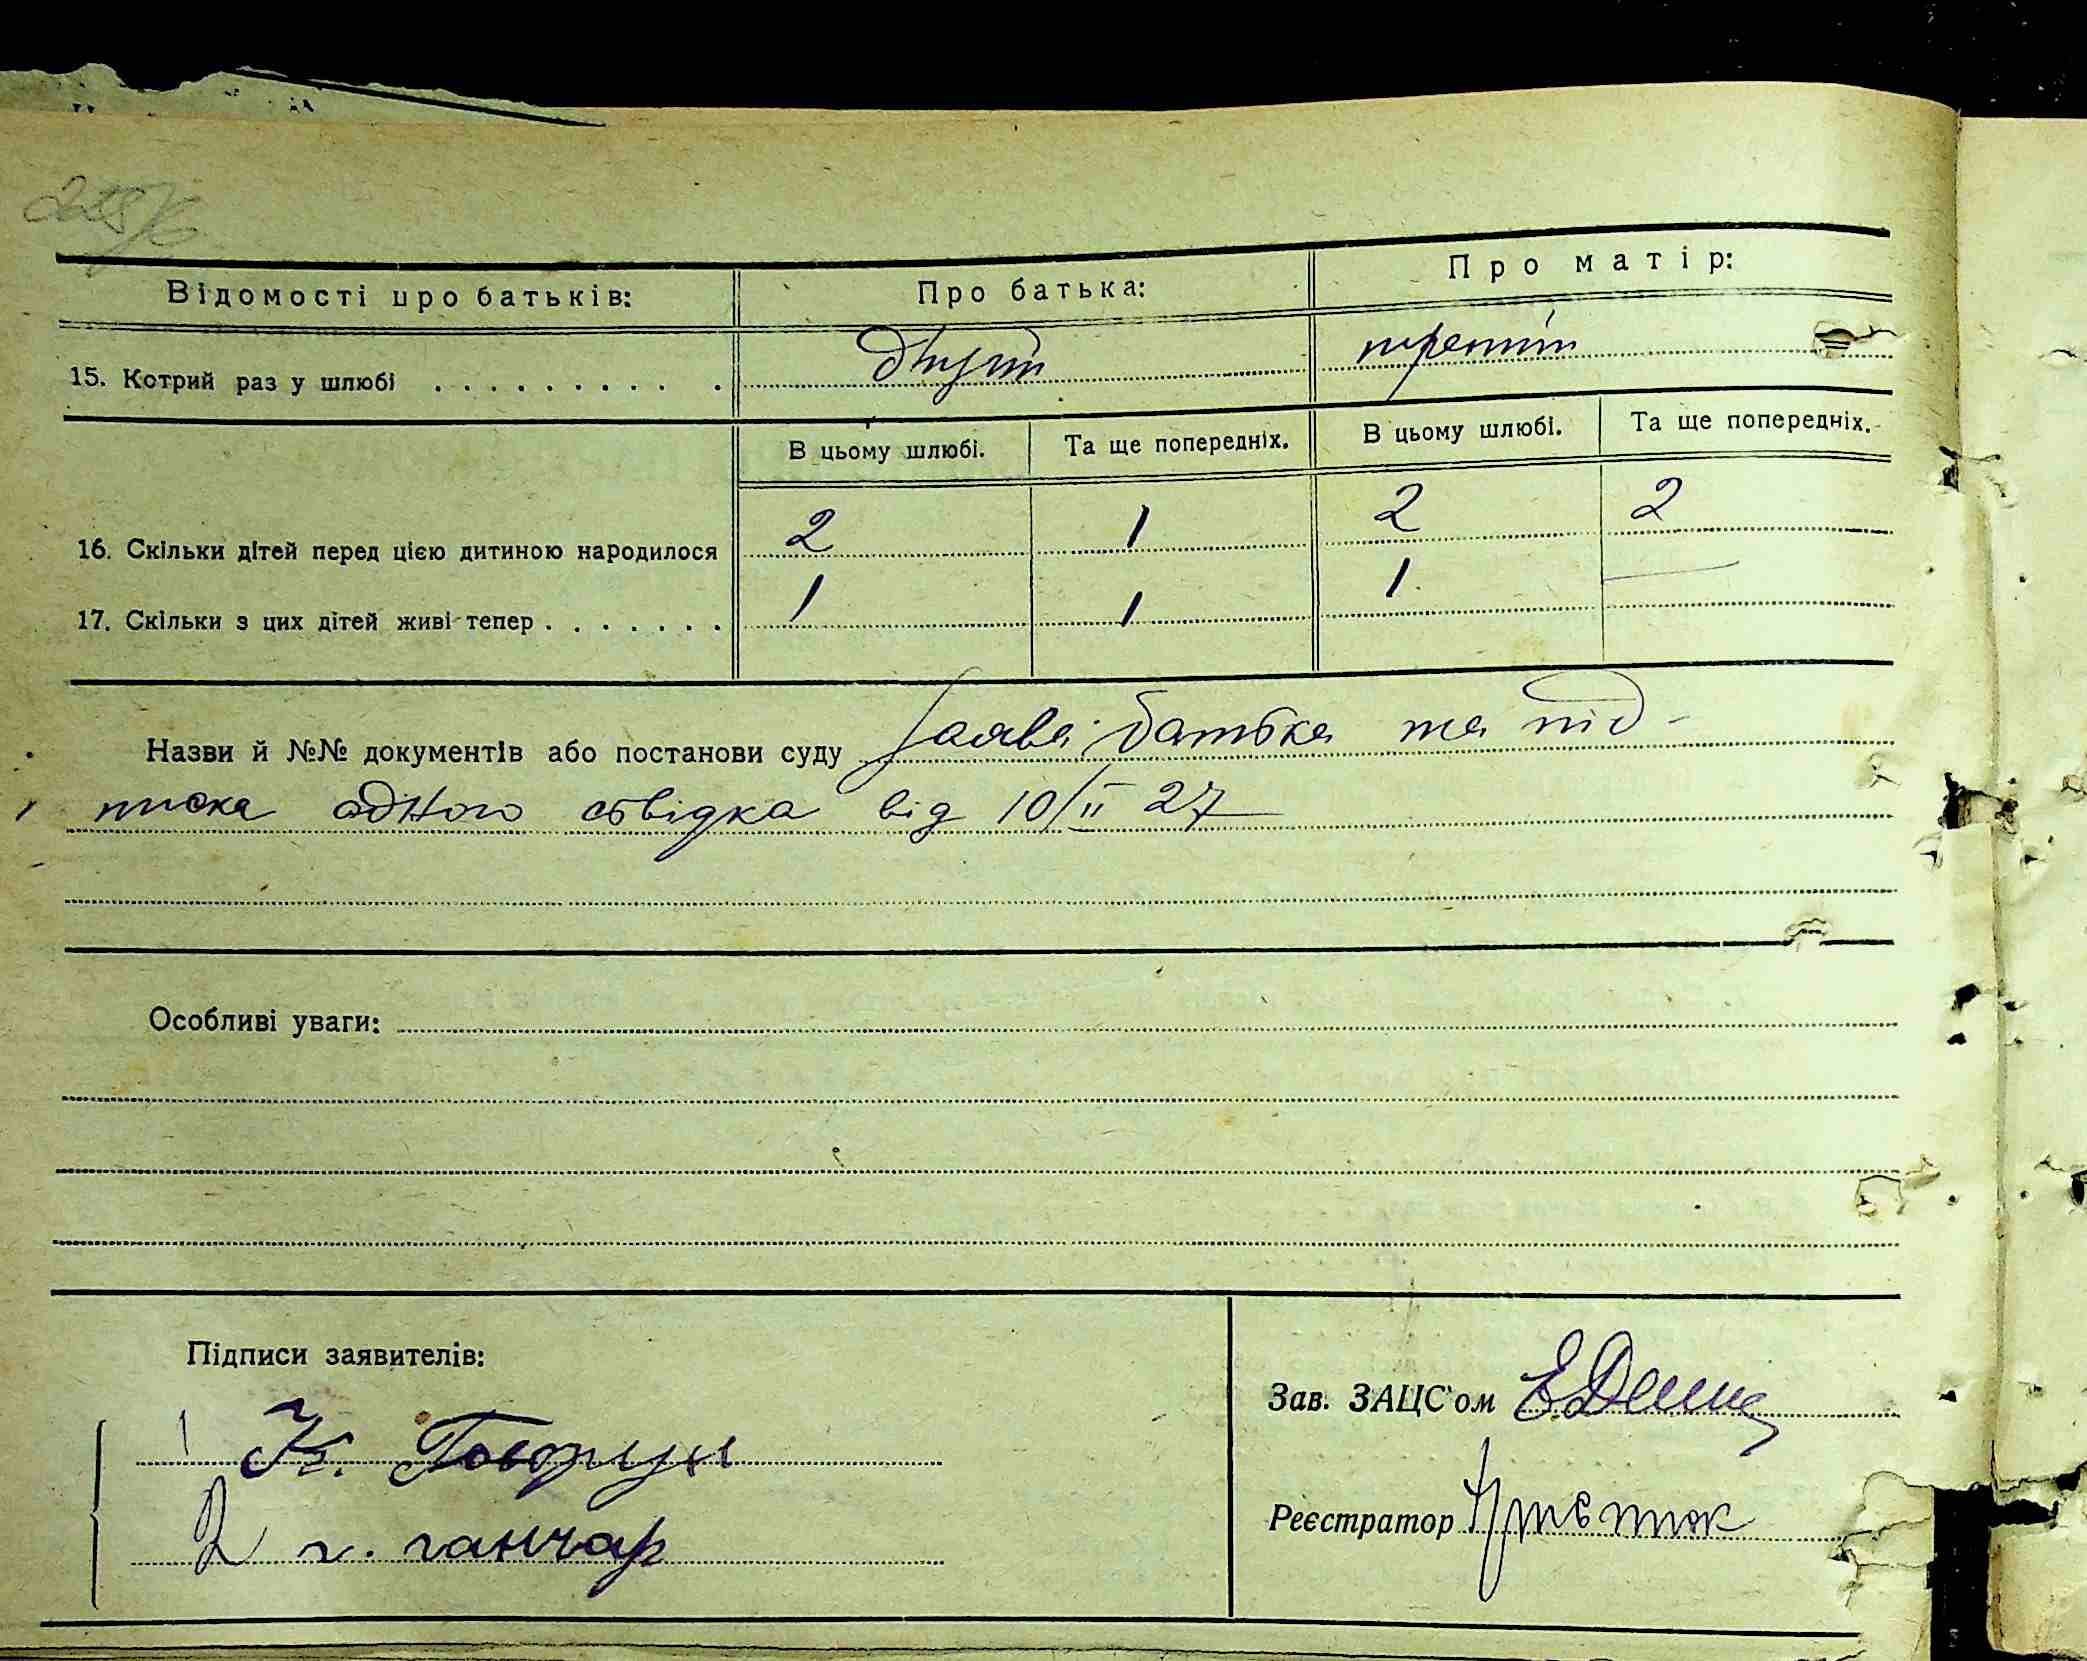 Відомості про батьків: Про батька: Про матір:
15. Котрий раз у шлюбі . . . . . . . . . . другий третій
В цьому шлюбі. Та ще попередніх. В цьому шлюбі. Та ще попередніх.
16. Скільки дітей перед цією дитиною народилося 2 1 2 2
17. Скільки з цих дітей живі тепер . . . . . . . 1 1 1 —
Назви й №№ документів або постанови суду Заява батька та під-
писка одного свідка від 10/II 27
Особливі уваги:
Підписи заявителів:
1 К.
2 г. ганчар
Зав. ЗАЦС'ом
Реєстратор